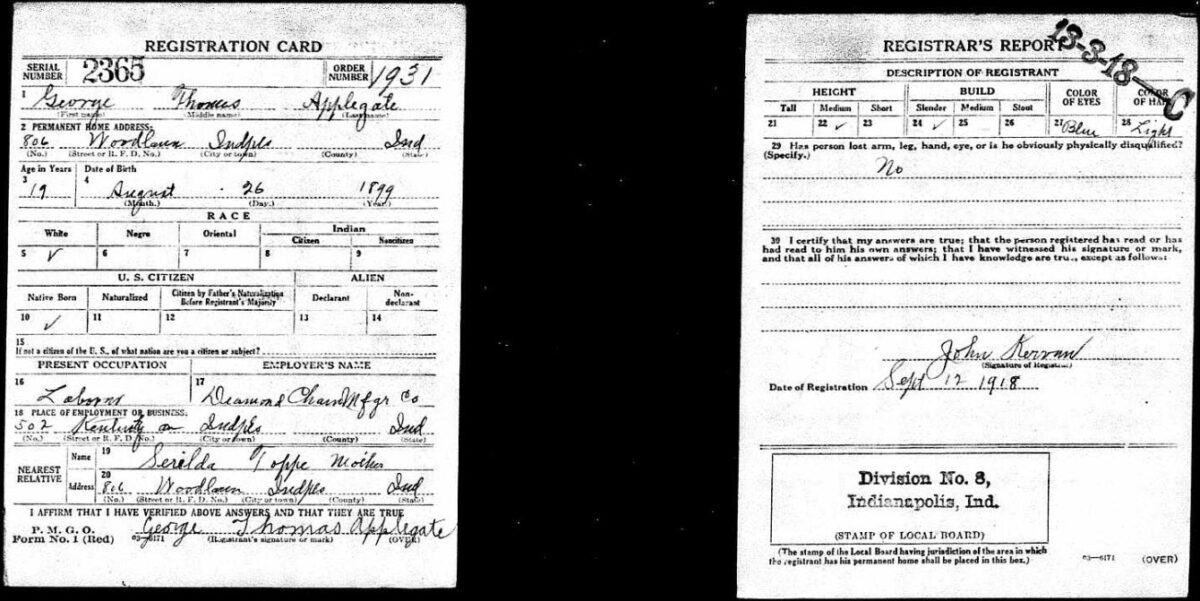 REGISTRATION CARD
SERIAL NUMBER 2365 ORDER NUMBER 1931
1 George Thomas Applegate
(First name) (Middle name) (Last name)
2 PERMANENT HOME ADDRESS:
806 Woodlawn Indpls Ind
(No.) (Street or R. F. D. No.) (City or town) (State)
Age in Years Date of Birth
3 4
19 August 26 1899
(Month.) (Day.) (Year.)
RACE
White Negro Oriental Indian
Citizen Noncitizen
5 ✓ 6 7 8 9
U. S. CITIZEN ALIEN
Native Born Naturalized Citizen by Father's Naturalization Before Registrant's Majority Declarant Non-declarant
10 ✓ 11 12 13 14
15
If not a citizen of the U. S., of what nation are you a citizen or subject?
PRESENT OCCUPATION EMPLOYER'S NAME
16 17
Laborer Diamond Chain Mfgr Co
18 PLACE OF EMPLOYMENT OR BUSINESS:
502 Kentucky av Indpls Ind
(No.) (Street or R. F. D. No.) (City or town) (County) (State)
NEAREST RELATIVE
Name 19 Serilda Toppe Mother
Address 20 806 Woodlawn Indpls Ind
(No.) (Street or R. F. D. No.) (City or town) (County) (State)
I AFFIRM THAT I HAVE VERIFIED ABOVE ANSWERS AND THAT THEY ARE TRUE
P. M. G. O.
Form No. 1 (Red) 03—6171 George Thomas Applegate
(Registrant's signature or mark) (OVER)
REGISTRAR'S REPORT
13-3-18-C
DESCRIPTION OF REGISTRANT
HEIGHT BUILD COLOR OF EYES COLOR OF HAIR
Tall Medium Short Slender Medium Stout
21 22 ✓ 23 24 ✓ 25 26 27 Blue 28 Light
29 Has person lost arm, leg, hand, eye, or is he obviously physically disqualified?
(Specify.)
No
30 I certify that my answers are true; that the person registered has read or has
had read to him his own answers; that I have witnessed his signature or mark,
and that all of his answers of which I have knowledge are true, except as follows:
John Kervan
(Signature of Registrar)
Date of Registration Sept 12 1918
Division No. 8,
Indianapolis, Ind.
(STAMP OF LOCAL BOARD)
(The stamp of the Local Board having jurisdiction of the area in which
the registrant has his permanent home shall be placed in this box.)
03—6171 (OVER)